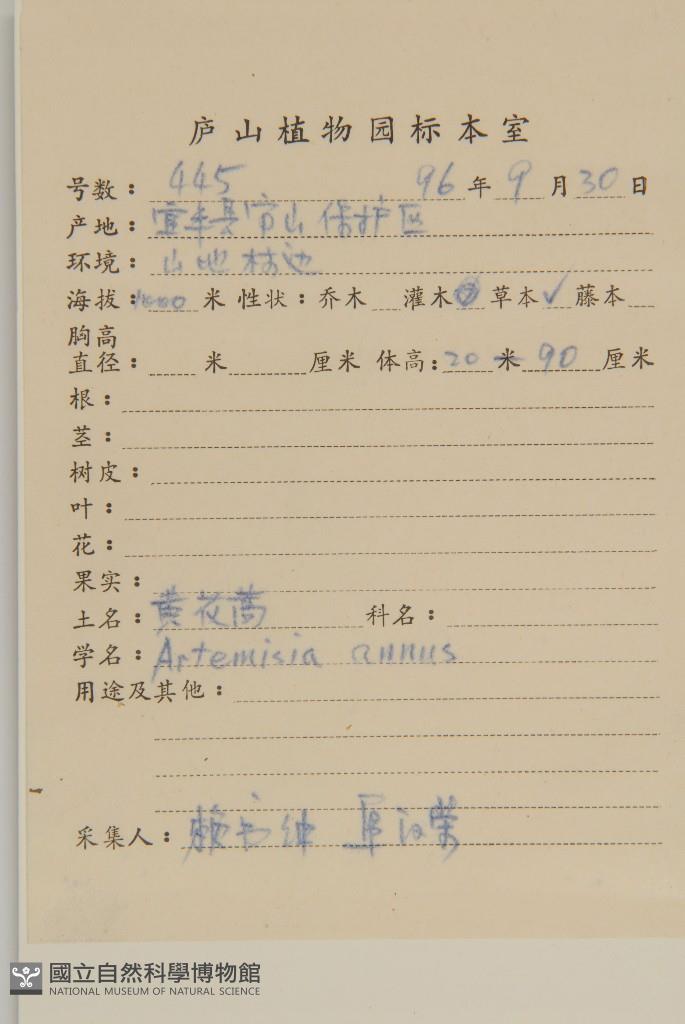 庐山植物园标本室
号数: 445 96年9月30日
产地: 宜丰县官山保护区
环境: 山地林边
海拔: 米 性状: 乔木 灌木 草本✓ 藤本
胸高
直径: 米 厘米 体高: 20 米 90 厘米
根:
茎:
树皮:
叶:
花:
果实:
土名: 黄花蒿 科名:
学名: Artemisia annus
用途及其他:
采集人: 赖书绅
國立自然科學博物館
NATIONAL MUSEUM OF NATURAL SCIENCE